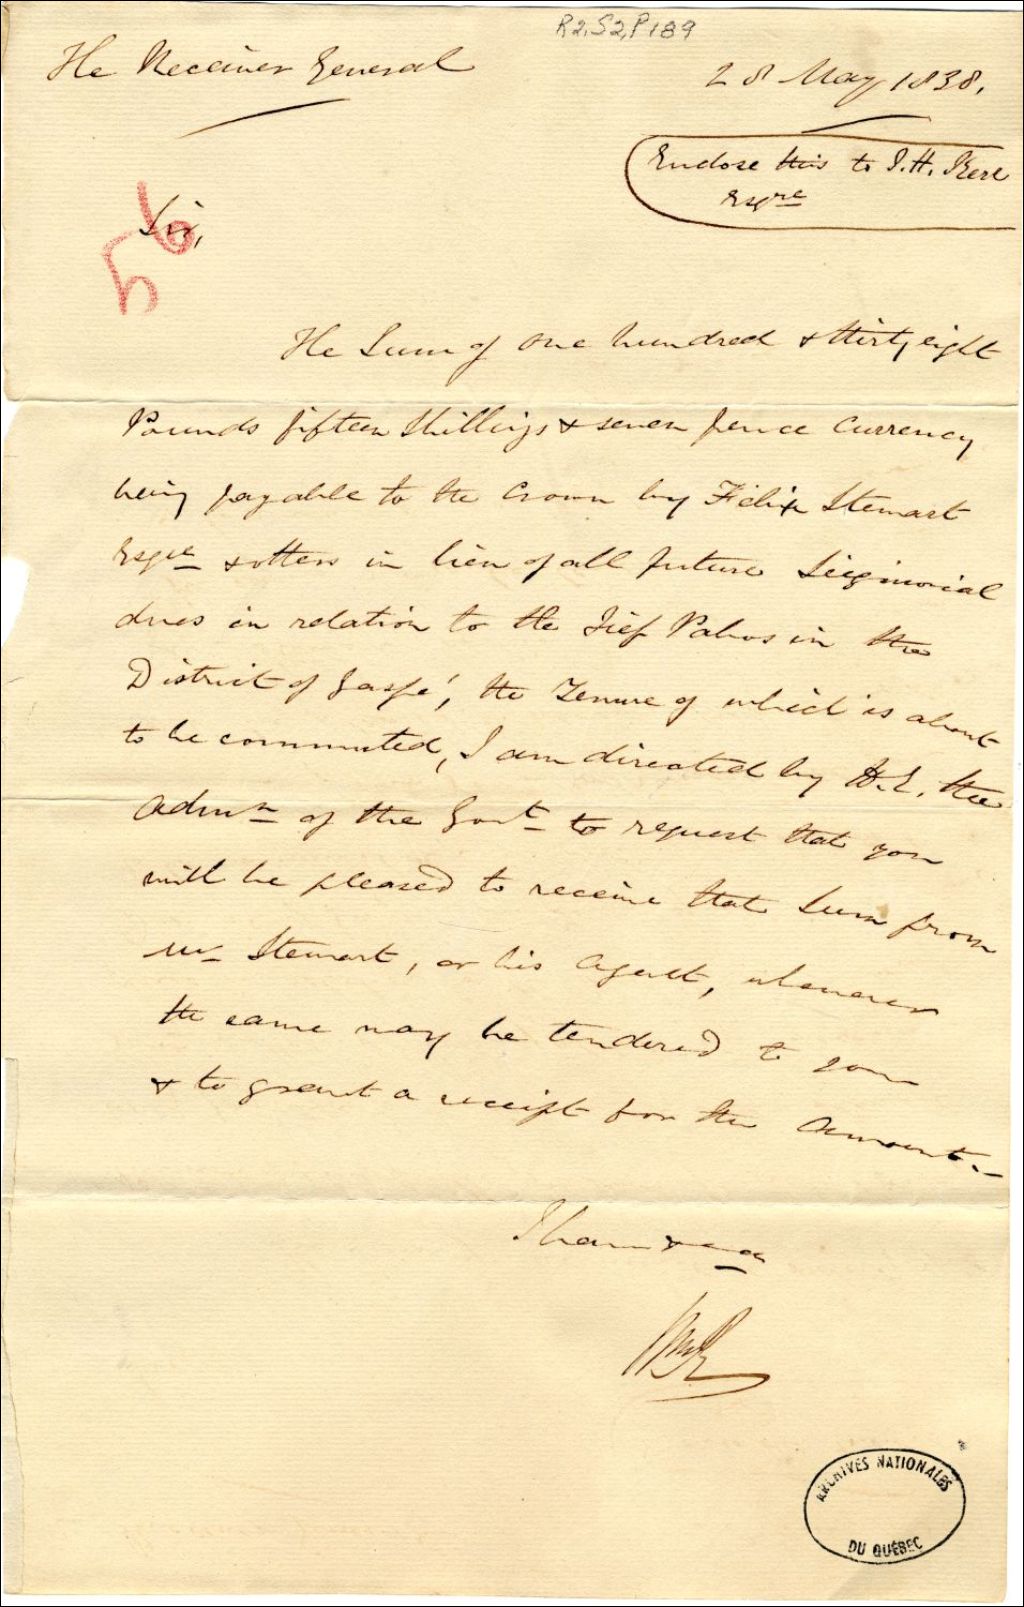 R2,S2,P189
The Receiver General
28 May 1838.
Enclose this to J.H. Kerr
Esqre
Sir,
56
The Sum of one hundred & thirty eight
Pounds fifteen Shillings & seven pence Currency
being payable to the Crown by Felix Stewart
Esqre & others in lieu of all future Seigniorial
dues in relation to the Fief Pabos in the
District of Gaspé, the Tenure of which is about
to be commuted, I am directed by H.E. the
Admn of the Govt to request that you
will be pleased to receive that Sum from
Mr Stewart, or his Agent, whenever
the same may be tendered to you
& to grant a receipt for the Amount.-
I have &ca
ARCHIVES NATIONALES
DU QUÉBEC